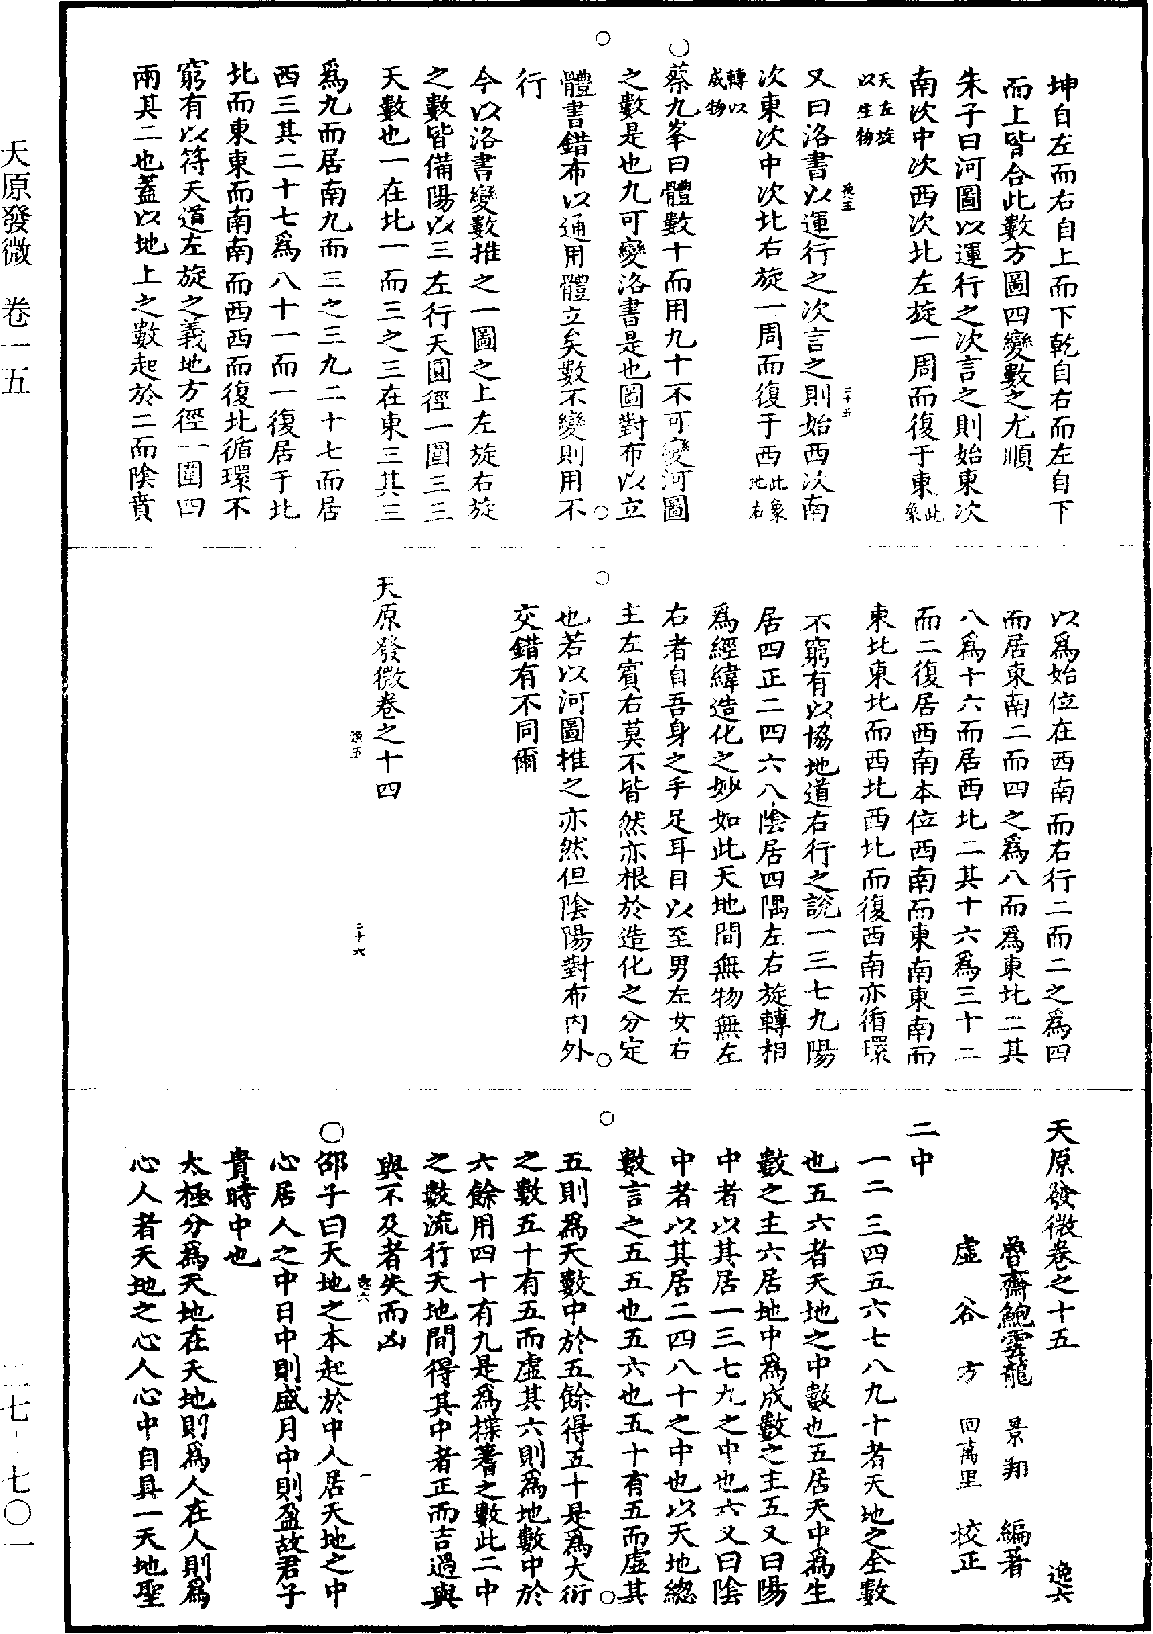 坤自左而右自上而下乾自右而左自下
而上皆合此數方圖四變數之尤順
朱子曰河圖以運行之次言之則始東次
南次中次西次北左旋一周而復于東此象
天左旋以生物
又曰洛書以運行之次言之則始西次南
次東次中次北右旋一周而復于西此象地右
轉以成物
○蔡九峯曰體數十而用九十不可變河圖
之數是也九可變洛書是也圖對布以立
體書錯布以通用體立矣數不變則用不
行
今以洛書變數推之一圖之上左旋右旋
之數皆備陽以三左行天圓徑一圍三三
天數也一在北一而三之三在東三其三
爲九而居南九而三之三九二十七而居
西三其二十七爲八十一而一復居于北
北而東東而南南而西西而復北循環不
窮有以符天道左旋之義地方徑一圍四
兩其二也蓋以地上之數起於二而陰賁
以爲始位在西南而右行二而二之爲四
而居東南二而四之爲八而爲東北二其
八爲十六而居西北二其十六爲三十二
而二復居西南本位西南而東南東南而
東北東北而西北西北而復西南亦循環
不窮有以協地道右行之說一三七九陽
居四正二四六八陰居四隅左右旋轉相
爲經緯造化之妙如此天地間無物無左
右者自吾身之手足耳目以至男左女右
主左賓右莫不皆然亦根於造化之分定
也若以河圖推之亦然但陰陽對布內外
交錯有不同爾
天原發微卷之十四
逸五
二十五
逸五
二十六
天原發微卷之十五
逸六
魯齋鮑雲龍 景翔 編著
虛谷方 回萬里 校正
二中
一二三四五六七八九十者天地之全數
也五六者天地之中數也五居天中爲生
數之主六居地中爲成數之主五又曰陽
中者以其居一三七九之中也六又曰陰
中者以其居二四八十之中也以天地總
數言之五五也五六也五十有五而虛其
五則爲天數中於五餘得五十是爲大衍
之數五十有五而虛其六則爲地數中於
六餘用四十有九是爲揲蓍之數此二中
之數流行天地間得其中者正而吉過與
與不及者失而凶
逸六
一
○邵子曰天地之本起於中人居天地之中
心居人之中日中則盛月中則盈故君子
貴時中也
太極分爲天地在天地則爲人在人則爲
心人者天地之心人心中自具一天地聖
天原發微 卷一五
二七-七〇一